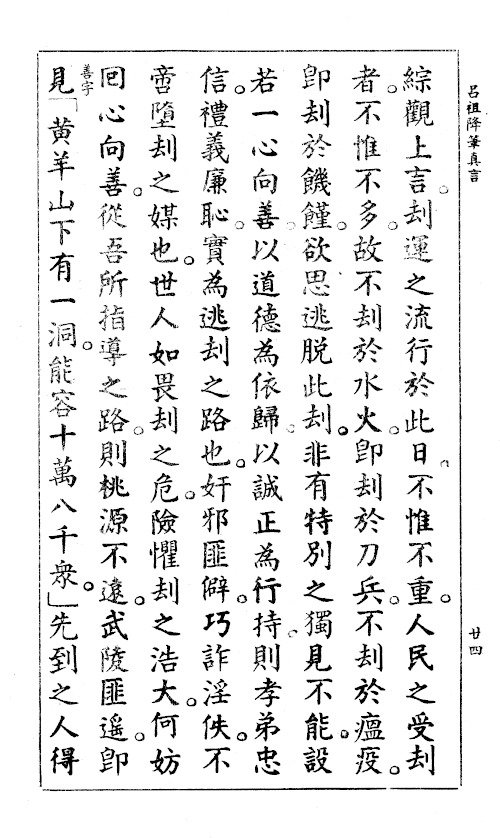 呂祖降筆真言
綜觀上言。刦運之流行於此日。不惟不重。人民之受刦
者。不惟不多。故不刦於水火。卽刦於刀兵。不刦於瘟疫。
卽刦於饑饉。欲思逃脫此刦。非有特別之獨見。不能設
若一心向善。以道德為依歸。以誠正為行持。則孝弟忠
信。禮義廉恥。實為逃刦之路也。奸邪匪僻。巧詐淫佚。不
啻墮刦之媒也。世人如畏刦之危險。懼刦之浩大。何妨
回心向善。從吾所指導之路。則桃源不遠。武陵匪遙。卽
見善字「黃羊山下有一洞。能容十萬八千衆。」先到之人得
廿四